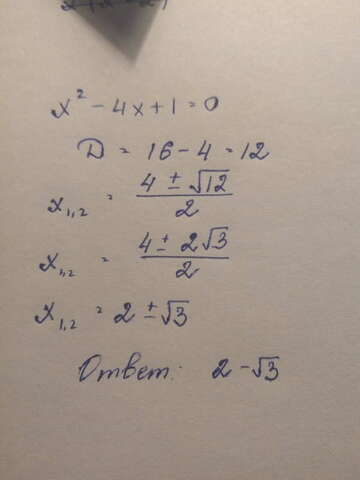 x² - 4x + 1 = 0
D = 16 - 4 = 12
x₁,₂ = (4 ± √12)/2
x₁,₂ = (4 ± 2√3)/2
x₁,₂ = 2 ± √3
Ответ: 2 - √3